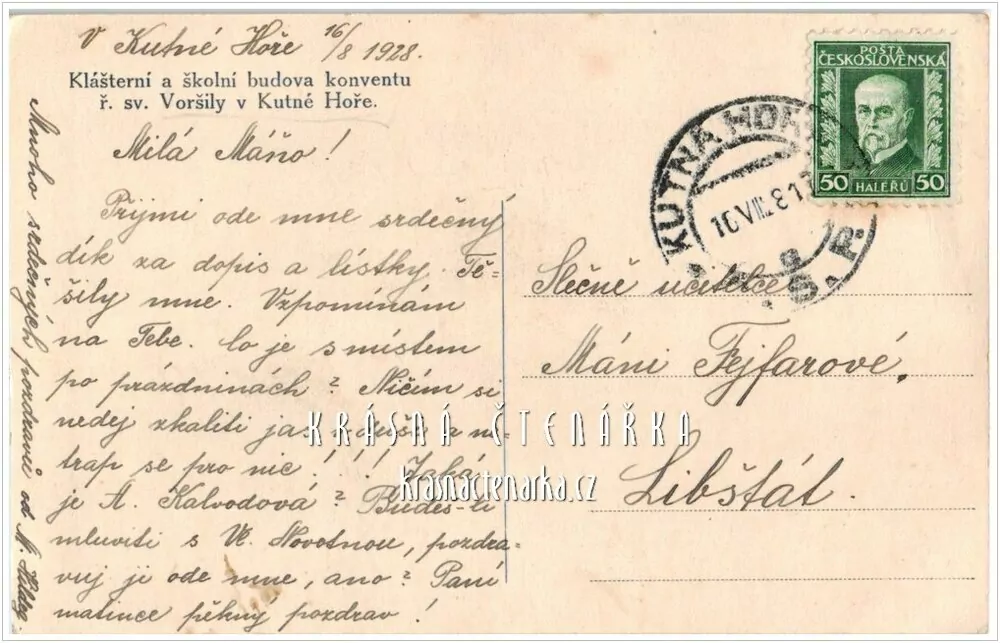 V Kutné Hoře 16/8 1928.
Klášterní a školní budova konventu
ř. sv. Voršily v Kutné Hoře.
Milá Máňo!
Přijmi ode mne srdečný
dík za dopis a lístky. Tě-
šily mne. Vzpomínám
na Tebe. Co je s místem
po prázdninách? Ničím si
nedej zkaliti jas duše a ne-
trap se pro nic!!! Jaká
je A. Kalvodová? Budeš-li
mluviti s Vl. Novotnou, pozdra-
vuj je ode mne, ano? Paní
matince pěkný pozdrav!
Mnoho srdečných pozdravů od M.
POŠTA
ČESKOSLOVENSKÁ
50 HALÉŘŮ 50
KUTNÁ HORA
VIII
Č.S.R.
Slečně učitelce
Máni Fejfarové,
Libštát.
KRÁSNÁ ČTENÁŘKA
krasnactenarka.cz